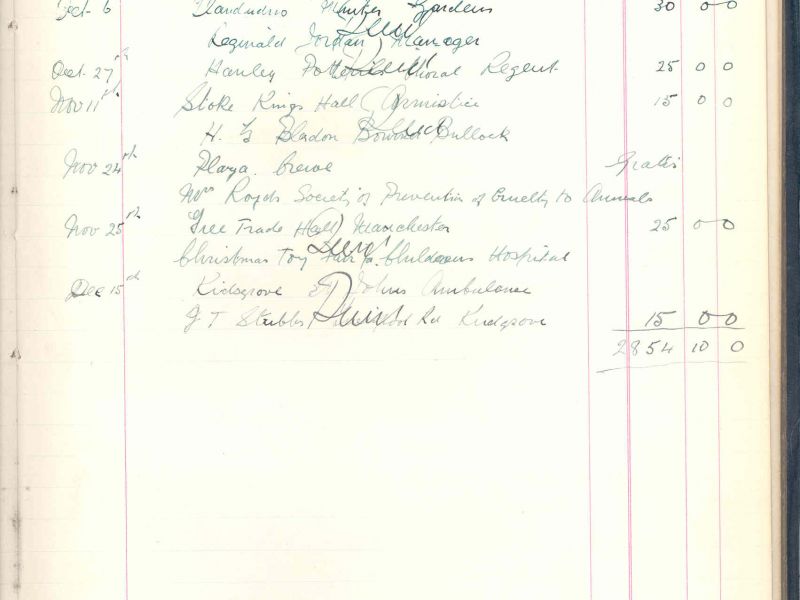 Oct 6 Llandudno Winter Gardens 30 0 0
Reginald Jordan, Manager
Oct 27th Hanley Choral Regent 25 0 0
Nov 11th Stoke Kings Hall Armistice 15 0 0
H. Bladon Bullock
Nov 24th Plaza. Crewe Gratis
Mrs Royds Society of Prevention of Cruelty to Animals
Nov 25th Free Trade Hall Manchester 25 0 0
Christmas Toy Fair Childrens Hospital
Dec 15 Kidsgrove St Johns Ambulance
J T Stubbs Rd Kidsgrove 15 0 0
2854 10 0